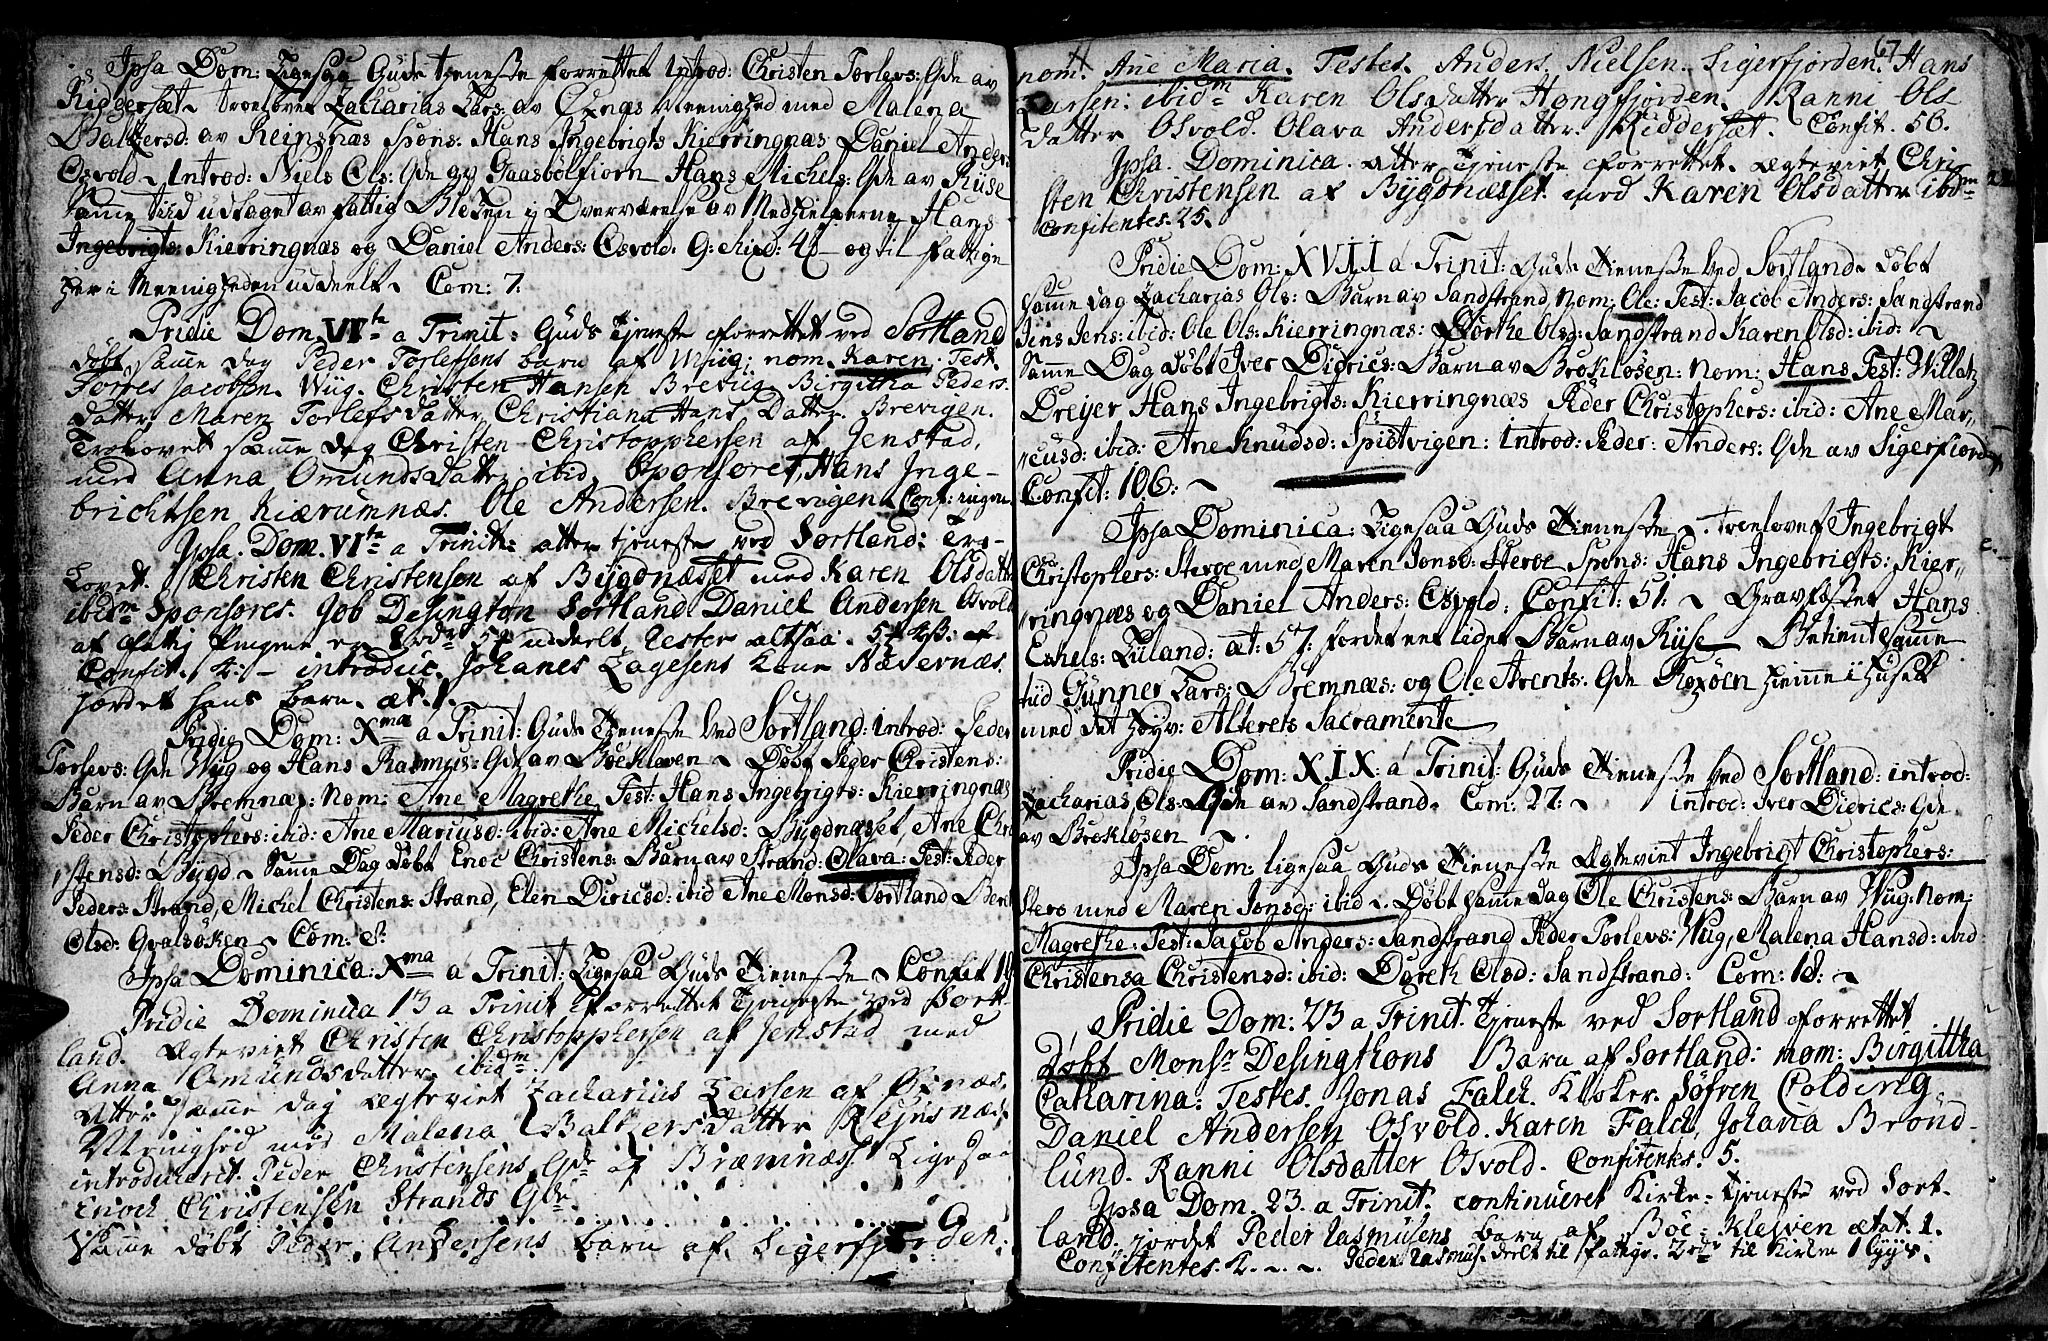 Ipsa Dom: Ligesaa Guds tieneste forrettet Introd: Christen Torlevs: Qde av
Riddersæt. troelovet Zacharias Lars: av Öxnæs Meenighed med Malena
Baltzersd: av Reinsnæs Spons: Hans Ingebrigts Kierringnæs Daniel Anders:
Osvold. Introd: Niels Ols: Qde af Gaasbölfiorn Hans Michels: Qde av Kiise
samme tiid udtaget av fattig Blokken i Overværelse av Medhielperne Hans
Ingebrigts: Kierringnæs og Daniel Anders: Osvold. 9: og til fattige
her i Meenigheden uddeelt. Com: 7.
Pridie Dom VIta a Trinit: Guds tjeneste forrettet ved Sortland
döbt samme dag Peder Torlefsens barn af Wiig: nom. Karen. Test.
Torres Jacobsen Wiig. Christen Hansen Brevig. Birgitha Peders
datter, Maren Torlefs datter, Christiana Hans Datter Brevigen.
Trolovet samme dag Christen Christopphersen af Jenstad,
med Anna Omunds datter ibid. Sponsores, Hans Inge-
brichtsen Kiærrumnæs. Ole Andersen. Brevigen. Conf: ingen.
Ipsa. Dom. VIta a Trinit: atter tjeneste ved Sortland: Tro-
lovet Christen Christensen af Bygdnæsset med Karen Olsdatter
ibidm Sponsores. Job Desington Sortland Daniel Andersen Osvold
af fattig Pengene er uddeelt Rester altsaa
Confit. 4: introduc. Johanes Lagesens Kone Næsernæs.
jordet hans barn. æt. 1.
Pridie Dom: Xma a Trinit: Guds Tieneste ved Sortland: introd: Peder
Torlevs: Qde Wiig og Hans Rasmus: Qde av Böekleven Döbt Peder Christens:
Barn av Bremnæs: Nom: Ane Magrethe Test: Hans Ingebrigts: Kierringnæs
Peder Christophers: ibid: Ane Mariusd: ibid: Ane Michelsd: Bygdnæsset, Ane Chri
stensd: Bygd. Samme Dag döbt Enoc Christens: Barn av Strand: Olava: Test: Peder
Peders: Strand, Michel Christens: Strand, Elen Diricsd: ibid Ane Monsd: Sortland Beret
Olsd: Qvalsöken. Com: 8:
Ipsa Dominica: Xma a Trinit: Ligesaa Guds Tieneste Confit 19
Pridie Dominica 13 a Trinit forrettet tjeneste ved Sort-
land. Ægteviet Christen Christopphersen af Jenstad med
Anna Omundsdatter. ibidm.
Atter samme dag ægteviet Zacharius Larsen af Öxnæs
Menighed med Malena Baltzersdatter Rejnsnæs
introduceret. Peder Christensens Qde af Bræmnæs. Ligesaa
Enoch Christensen Strands Qde.
Samme döbt Peder Andersens barn af Sigerfjorden:
67
nom. Ane Maria. Testes. Anders Nielsen. Sigerfjorden. Hans
Larsen: ibidm Karen Olsdatter Hongfjorden. Ranni Ols
datter Osvold. Olava Andersdatter. Riddersæt. Confit. 56.
Ipsa. Dominica. atter tjeneste forrettet. ægteviet Chri-
sten Christensen af Bygdnæsset med Karen Olsdatter ibidm
Confitentes. 25.
Pridie Dom: XVII a Trinit: Guds Tieneste ved Sortland. döbt
samme dag Zacharias Ols: Barn av Sandstrand Nom: Ole: Test: Jacob Anders: Sandstrand
Jens Jens: ibid: Ole Ols: Kierringnæs: Dorthe Olsd: Sandstrand Karen Olsd: ibid:
Samme Dag Döbt Iver Dirics: Barn av Brokløsen: Nom: Hans Test: Willatz
Dreyer Hans Ingebrigts: Kierringnæs Peder Christophers: ibid: Ane Mar-
cusd: ibid: Ane Knudsd: Spistvigen: Introd: Peder: Anders: Qde av Sigerfiord
Confit: 106:
Ipsa Dominica: Ligesaa Guds Tieneste. Troelovet Ingebrigt
Christophers: Steroe med Maren Jonsd: Steroe Spons: Hans Ingebrigts: Kier-
ringnæs og Daniel Anders: Osvold: Confit: 51: Gravfæstet Hans
Eshels: Lyland: æt: 57: jordet eet lidet Barn av Kiise Betient samme
tiid Gunner Lars: Bremnæs: og Ole Arents: Qde Roxöen hiemme i Huset
med det høyv: Alterets Sacramente
Pridie Dom: XIX: a Trinit: Guds Tieneste ved Sortland: introd:
Zacharias Ols: Qde av Sandstrand. Com: 27: introd: Iver Dierics: Qde
av Brokløsen
Ipsa Dom: ligesaa Guds Tieneste Ægteviet Ingebrigt Christophers:
Stero med Maren Jonsd: ibid. Döbt samme dag Ole Christens: Barn av Wiig: Nom:
Magrethe: Test: Jacob Anders: Sandstrand Peder Torlevs: Wiig, Malena Hansd: ibid:
Christensa Christensd: ibid: Doreth Olsd: Sandstrand: Com: 18:
Pridie Dom: 23 a Trinit. tjeneste ved Sortland forrettet
Döbt Monsr Desingthons Barn af Sortland: nom: Birgittha
Catharina: Testes. Jonas Falch. Kloker. Söfren Colding
Daniel Andersen Osvold. Karen Falch, Johana Brönd-
lund. Ranni Olsdatter Osvold. Confitentes. 5.
Ipsa Dom. 23. a Trinit. continueret Kirke-tjeneste ved Sort-
land. jordet Peder Rasmusens barn af Böe-Kleiven ætat. 1.
Confitentes. 2. Peder Rasmus. deelt til fattige. til Kirken